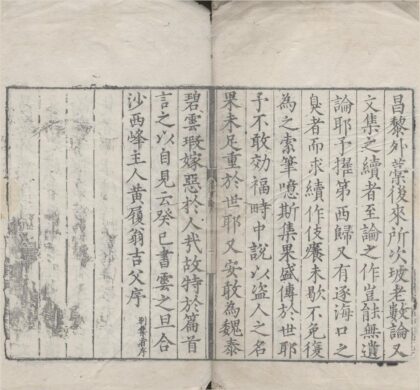 昌黎外藁後來所次坡老數論又
文集之續者至論之作豈能無遺
論耶予擢第西歸又有逐海口之
臭者而求續作伎癢未歇不免復
為之索筆噫斯集果盛傳於世耶
予不敢効福畤中說以盜人之名
果未足重於世耶又安敢為魏泰
碧雲瑕嫁惡於人哉故特於篇首
言之以自見云癸巳書雲之旦合
沙西峰主人黄履翁吉父序